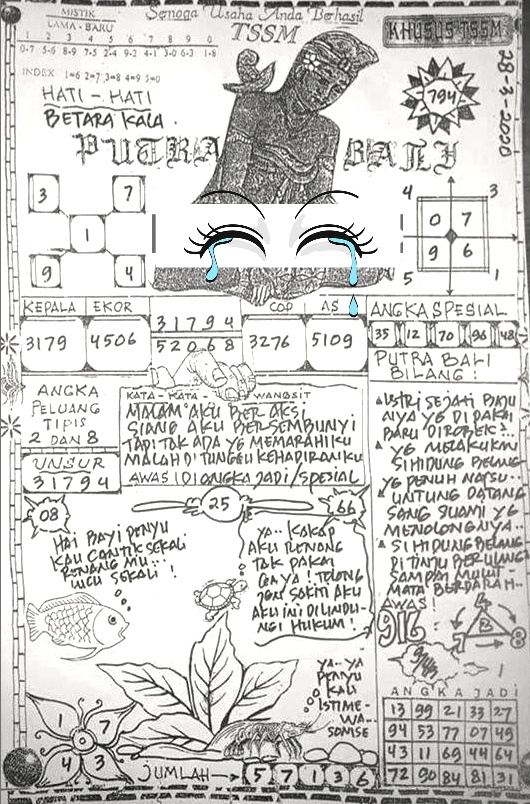 MISTIK
LAMA - BARU
1 2 3 4 5 6 7 8 9 0
0-7 5-6 8-9 7-5 2-4 9-2 4-1 3-0 6-3 1-8
INDEX 1=6 2=7 3=8 4=9 5=0
Semoga Usaha Anda Berhasil
TSSM
KHUSUS TSSM
28-3-2020
794
HATI - HATI
BETARA KALA.
PUTRA BALI
3 7
1
9 4
4 3
0 7
9 6
5 1
KEPALA EKOR
3179 4506
31794
52068
COP AS
3276 5109
ANGKA SPESIAL
35 12 70 96 48
ANGKA
PELUANG
TIPIS
2 DAN 8
UNSUR
31794
KATA - KATA - WANGSIT
MALAM AKU BER AKSI
SIANG AKU BERSEMBUNYI
TAPI TAK ADA YG MEMARAHIKU
MALAH DI TUNGGU KEHADIRANKU
AWAS IDI ANGKA JADI/SPESIAL
PUTRA BALI
BILANG :
ISTRI SEJATI BAJU
NYA YG DI PAKAI
BARU DI ROBEK?...
YG MELAKUKAN
SI HIDUNG BELANG
YG PENUH NAFSU..
UNTUNG DATANG
SANG SUAMI YG
MENOLONGNYA..
SI HIDUNG BELANG
DI TINJU BERULANG
SAMPAI MULUT
MATA BERDARAH..
AWAS!
08
25
66
HAI BAYI PENYU
KAU CANTIK SEKALI
RENANG MU...
LUCU SEKALI !
YA.. KAKAP
AKU RENANG
TAK PAKAI
GAYA ! TOLONG
JGN SAKITI AKU
AKU INI DILINDU-
NGI HUKUM !
YA..YA
PENYU
KAU
ISTIME-
WA...
916
4
2
8
ANGKA JADI
13 99 21 33 27
94 53 77 07 49
43 11 69 44 64
72 90 84 81 31
1 7
0
4 3
JUMLAH → 5 7 1 3 6